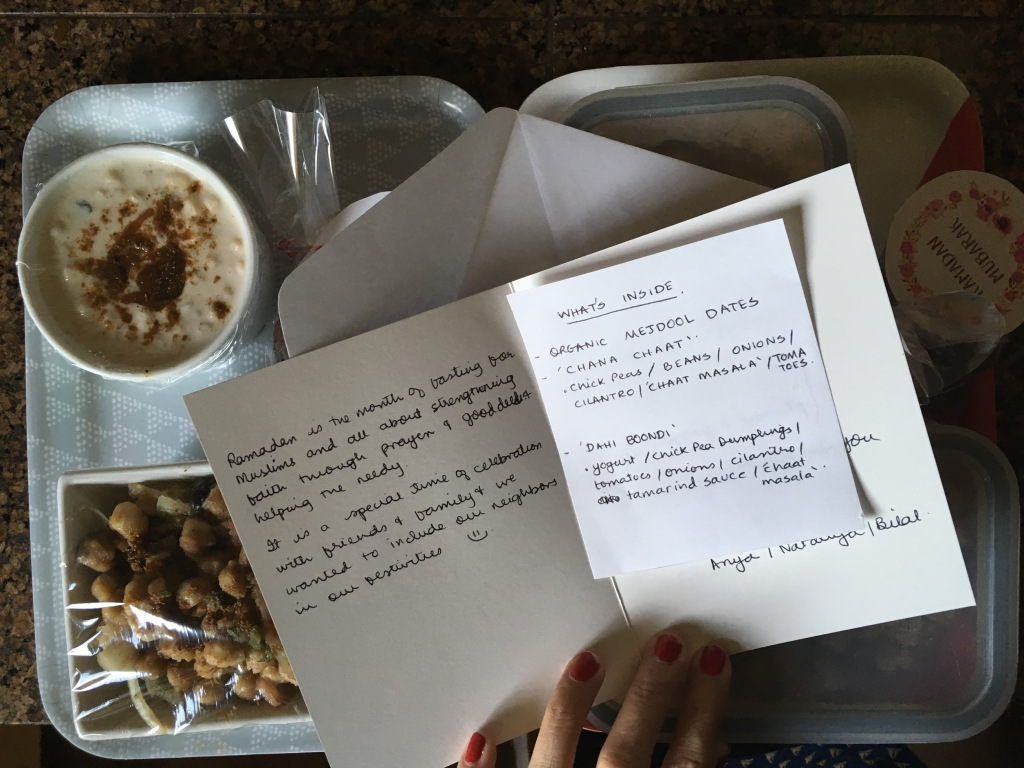 Ramadan is the month of fasting for
Muslims and all about strengthening
faith through prayer & good deeds &
helping the needy.
It is a special time of celebration
with friends & family & we
wanted to include our neighbors
in our festivities
WHAT'S INSIDE.
- ORGANIC MEJDOOL DATES
- 'CHANA CHAAT':
• Chick Peas / BEANS / ONIONS /
CILANTRO / 'CHAAT MASALA' / TOMA
TOES.
- 'DAHI BOONDI'
• yogurt / Chick Pea Dumplings /
tomatoes / onions / cilantro /
tamarind sauce / Chaat
masala
you
Anya / / Bilal.
RAMADAN
MUBARAK